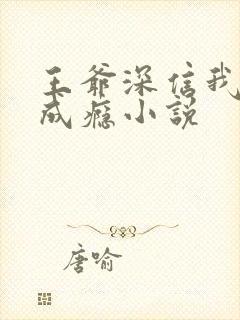 王爷深信我
成瘾小说
唐喻